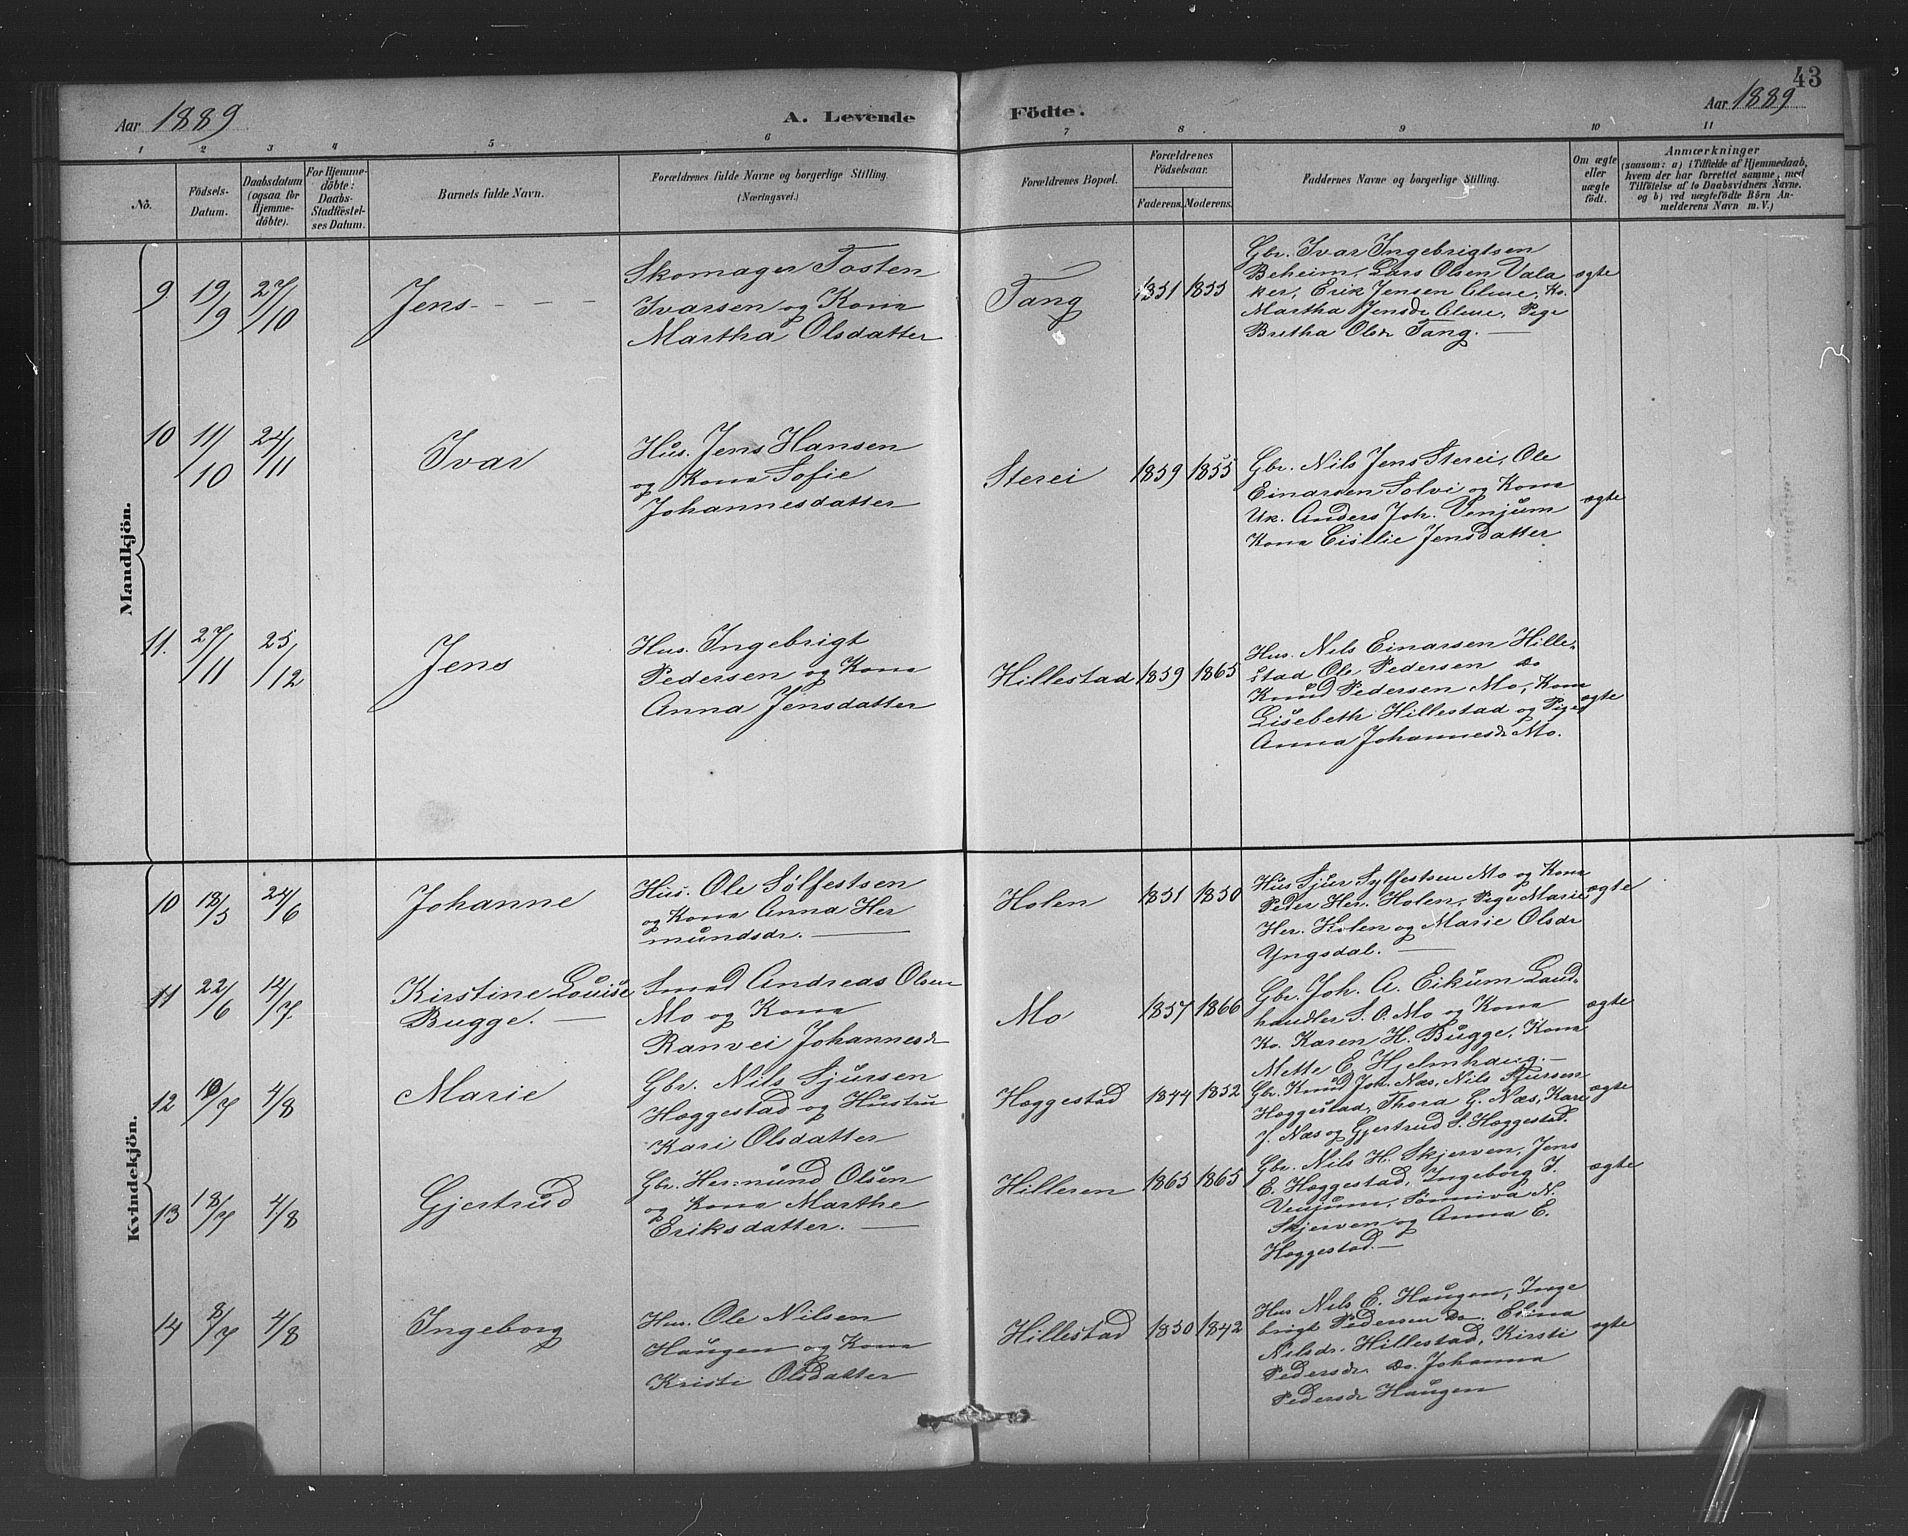 43
Aar 1889
A. Levende Födte.
Aar 1889
1 2 3 4 5 6 7 8 9 10 11
No.
Födsels-
Datum.
Daabsdatum
(ogsaa for
Hjemme-
döbte).
For Hjemme-
döbte:
Daabs-
Stadfæstel-
ses Datum.
Barnets fulde Navn.
Forældrenes fulde Navne og borgerlige Stilling.
(Næringsvei.)
Forældrenes Bopæl.
Forældrenes
Födselsaar.
Faderens. Moderens.
Faddernes Navne og borgerlige Stilling.
Om ægte
eller
uægte
födt.
Anmærkninger
(saasom: a) i Tilfælde af Hjemmedaab,
hvem der har forrettet samme, med
Tilföielse af to Daabsvidners Navne,
og b) ved uægtefödte Börn An-
melderens Navn m. V.)
Mandkjön.
9 19/9 27/10
Jens
Skomager Tosten
Ivarsen og Kona
Martha Olsdatter
Tang
1851 1855
Gbr. Ivar Ingebrigtsen
Beheim, Lars Olsen Vala
ker, Erik Jensen
Martha Jensdr Pige
Bretha Olsdr Tang.
ægte
10 11/10 24/11
Ivar
Hus. Jens Hansen
og Kona Sofie
Johannesdatter
Sterei
1859 1855
Gbr. Nils Jens Sterei, Ole
Einarsen Solvi og Kona
Uk. Anders Joh. Venjum
Kona Cisilie Jensdatter
ægte
11. 27/11 25/12
Jens
Hus. Ingebrigt
Pedersen og Kona
Anna Jensdatter
Hillestad
1859 1865
Hus. Nils Einarsen Hille-
stad Ole Pedersen do
Knud Pedersen Mo, Kona
Lisebeth Hillestad og Pige
Anna Johannesdr Mo.
ægte
Kvindekjön.
10 18/5 24/6
Johanne
Hus. Ole Sølfestsen
og Kona Anna Her
mundsdr.
Holen
1851 1850
Hus Sjur Sylfestsen Mo og Kona
Peder Her. Holen, Pige Marie
Her. Holen og Marie Olsdr
Yngsdal.
ægte
11 22/6 14/7
Kirstine Louise
Bugge.
Smed Andreas Olsen
Mo og Kona
Ranvei Johannesdr
Mo
1857 1866
Gbr. Joh. A. Eikum Land-
handler S. O. Mo og Kona
Ko. Karen H. Bugge, Kona
Mette E. Hjelmhaug.
ægte
12 10/7 4/8
Marie
Gbr. Nils Sjursen
Hæggestad og Hustru
Kari Olsdatter
Hæggestad
1844 1852
Gbr. Knud Joh. Næs, Nils Sjursen
Hæggestad, Thora G. Næs, Kari
J. Næs og Gjertrud S. Hæggestad.
ægte
13 18/7 4/8
Gjertrud
Gbr. Hermund Olsen
og Kona Marthe
Eriksdatter.
Hilleren
1865 1865
Gbr. Nils H. Skjerven, Jens
E. Hæggestad, Ingeborg I.
Venjum, Sønniva N.
Skjerven og Anna E.
Hæggestad.
ægte
14 8/7 4/8
Ingeborg
Hus. Ole Nilsen
Haugen og Kona
Kristi Olsdatter
Hillestad
1850 1842
Hus Nils E. Haugen, Inge
brigt Pedersen do. Elina
Nilsdr. Hillestad, Kirsti
Pedersdr do. Johanna
Pedersdr Haugen
ægte